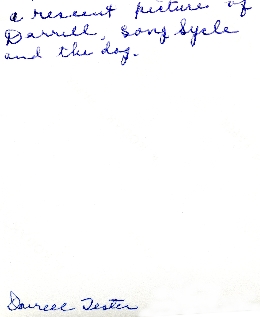 a rescent picture of
Darrell, Song Sycle
and the dog.
Darrell Tester